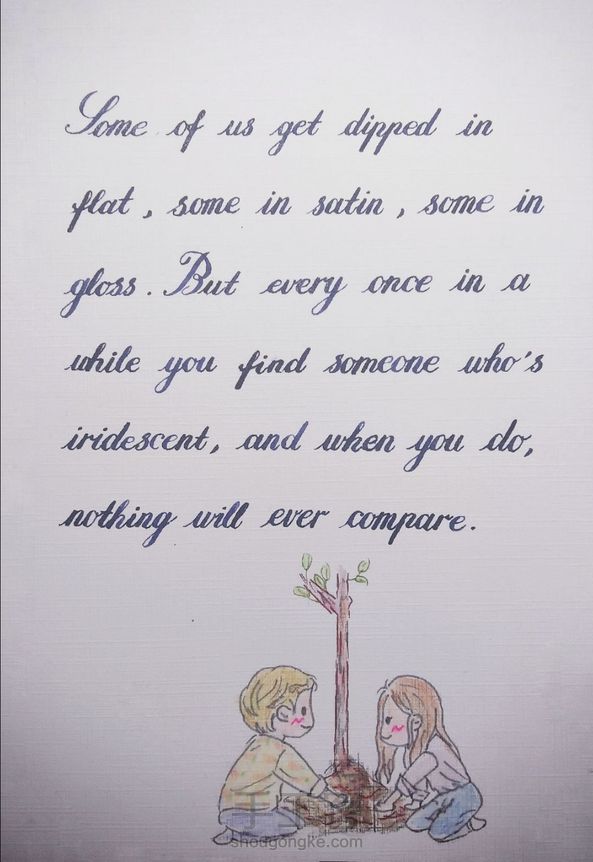 Some of us get dipped in
flat, some in satin, some in
gloss. But every once in a
while you find someone who's
iridescent, and when you do,
nothing will ever compare.
shougongke.com